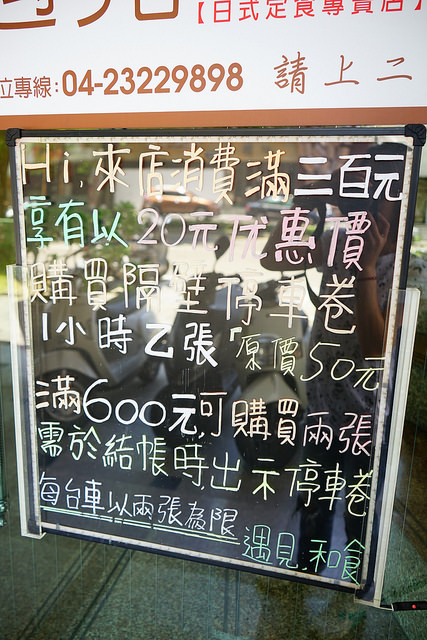 【日式定食專賣店】
位專線:04-23229898 請上二
Hi,來店消費滿三百元
享有以20元优惠價
購買隔壁停車卷
1小時乙張「原價50元
滿600元,可購買兩張
需於結帳時出示停車卷
每台車以兩張為限
遇見,和食